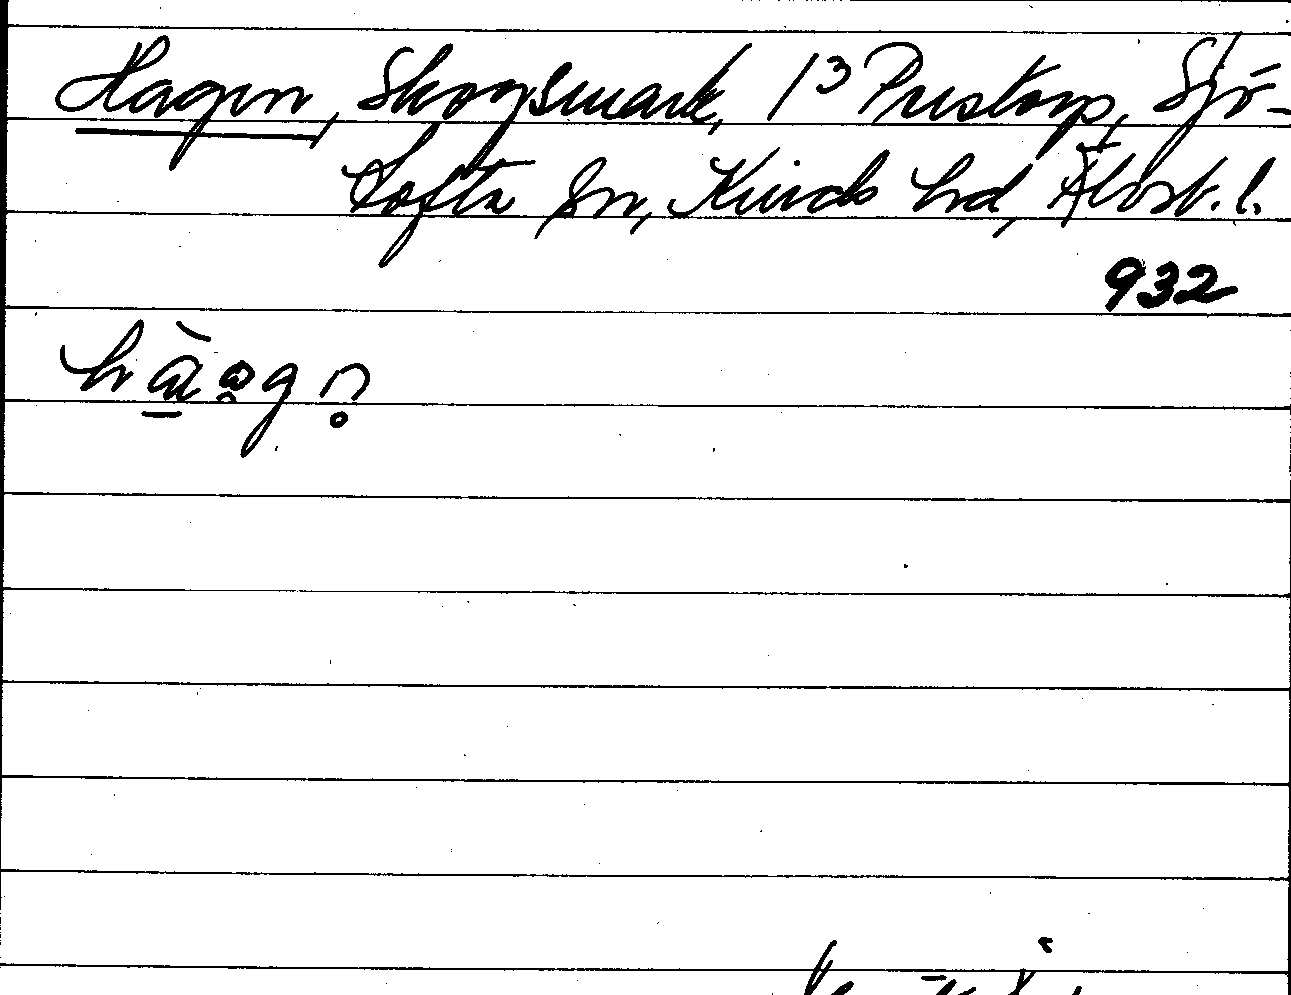 Hagen, Skogsmark, 1³ Prestorp, Sjö-
tofta sn, Kinds hd, Älvsb. l.
932